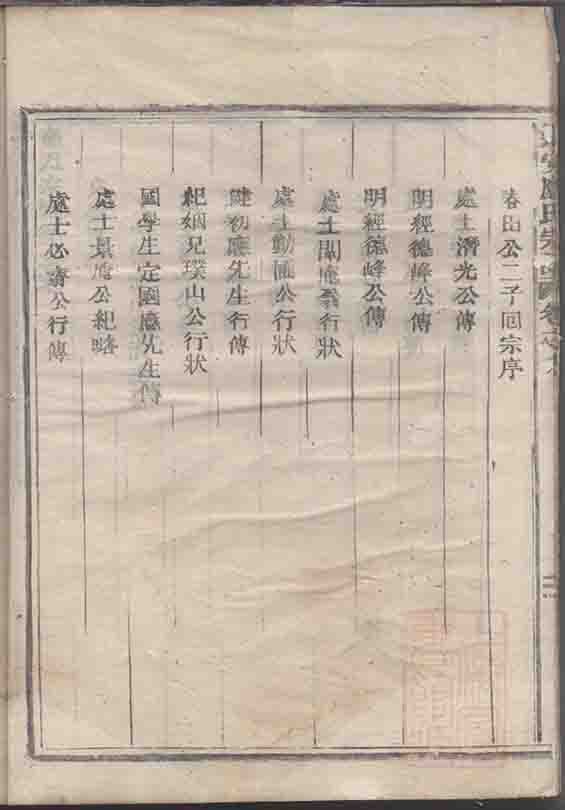 春田公二子回宗序
處士潛光公傳
明經德峰公傳
明經德峰公傳
處士闇庵翁行狀
處士勳臣公行狀
健初應先生行傳
紀姻兄璞山公行狀
國學生定國應先生傳
處士景庵公紀略
處士必齋公行傳
應氏宗譜
二